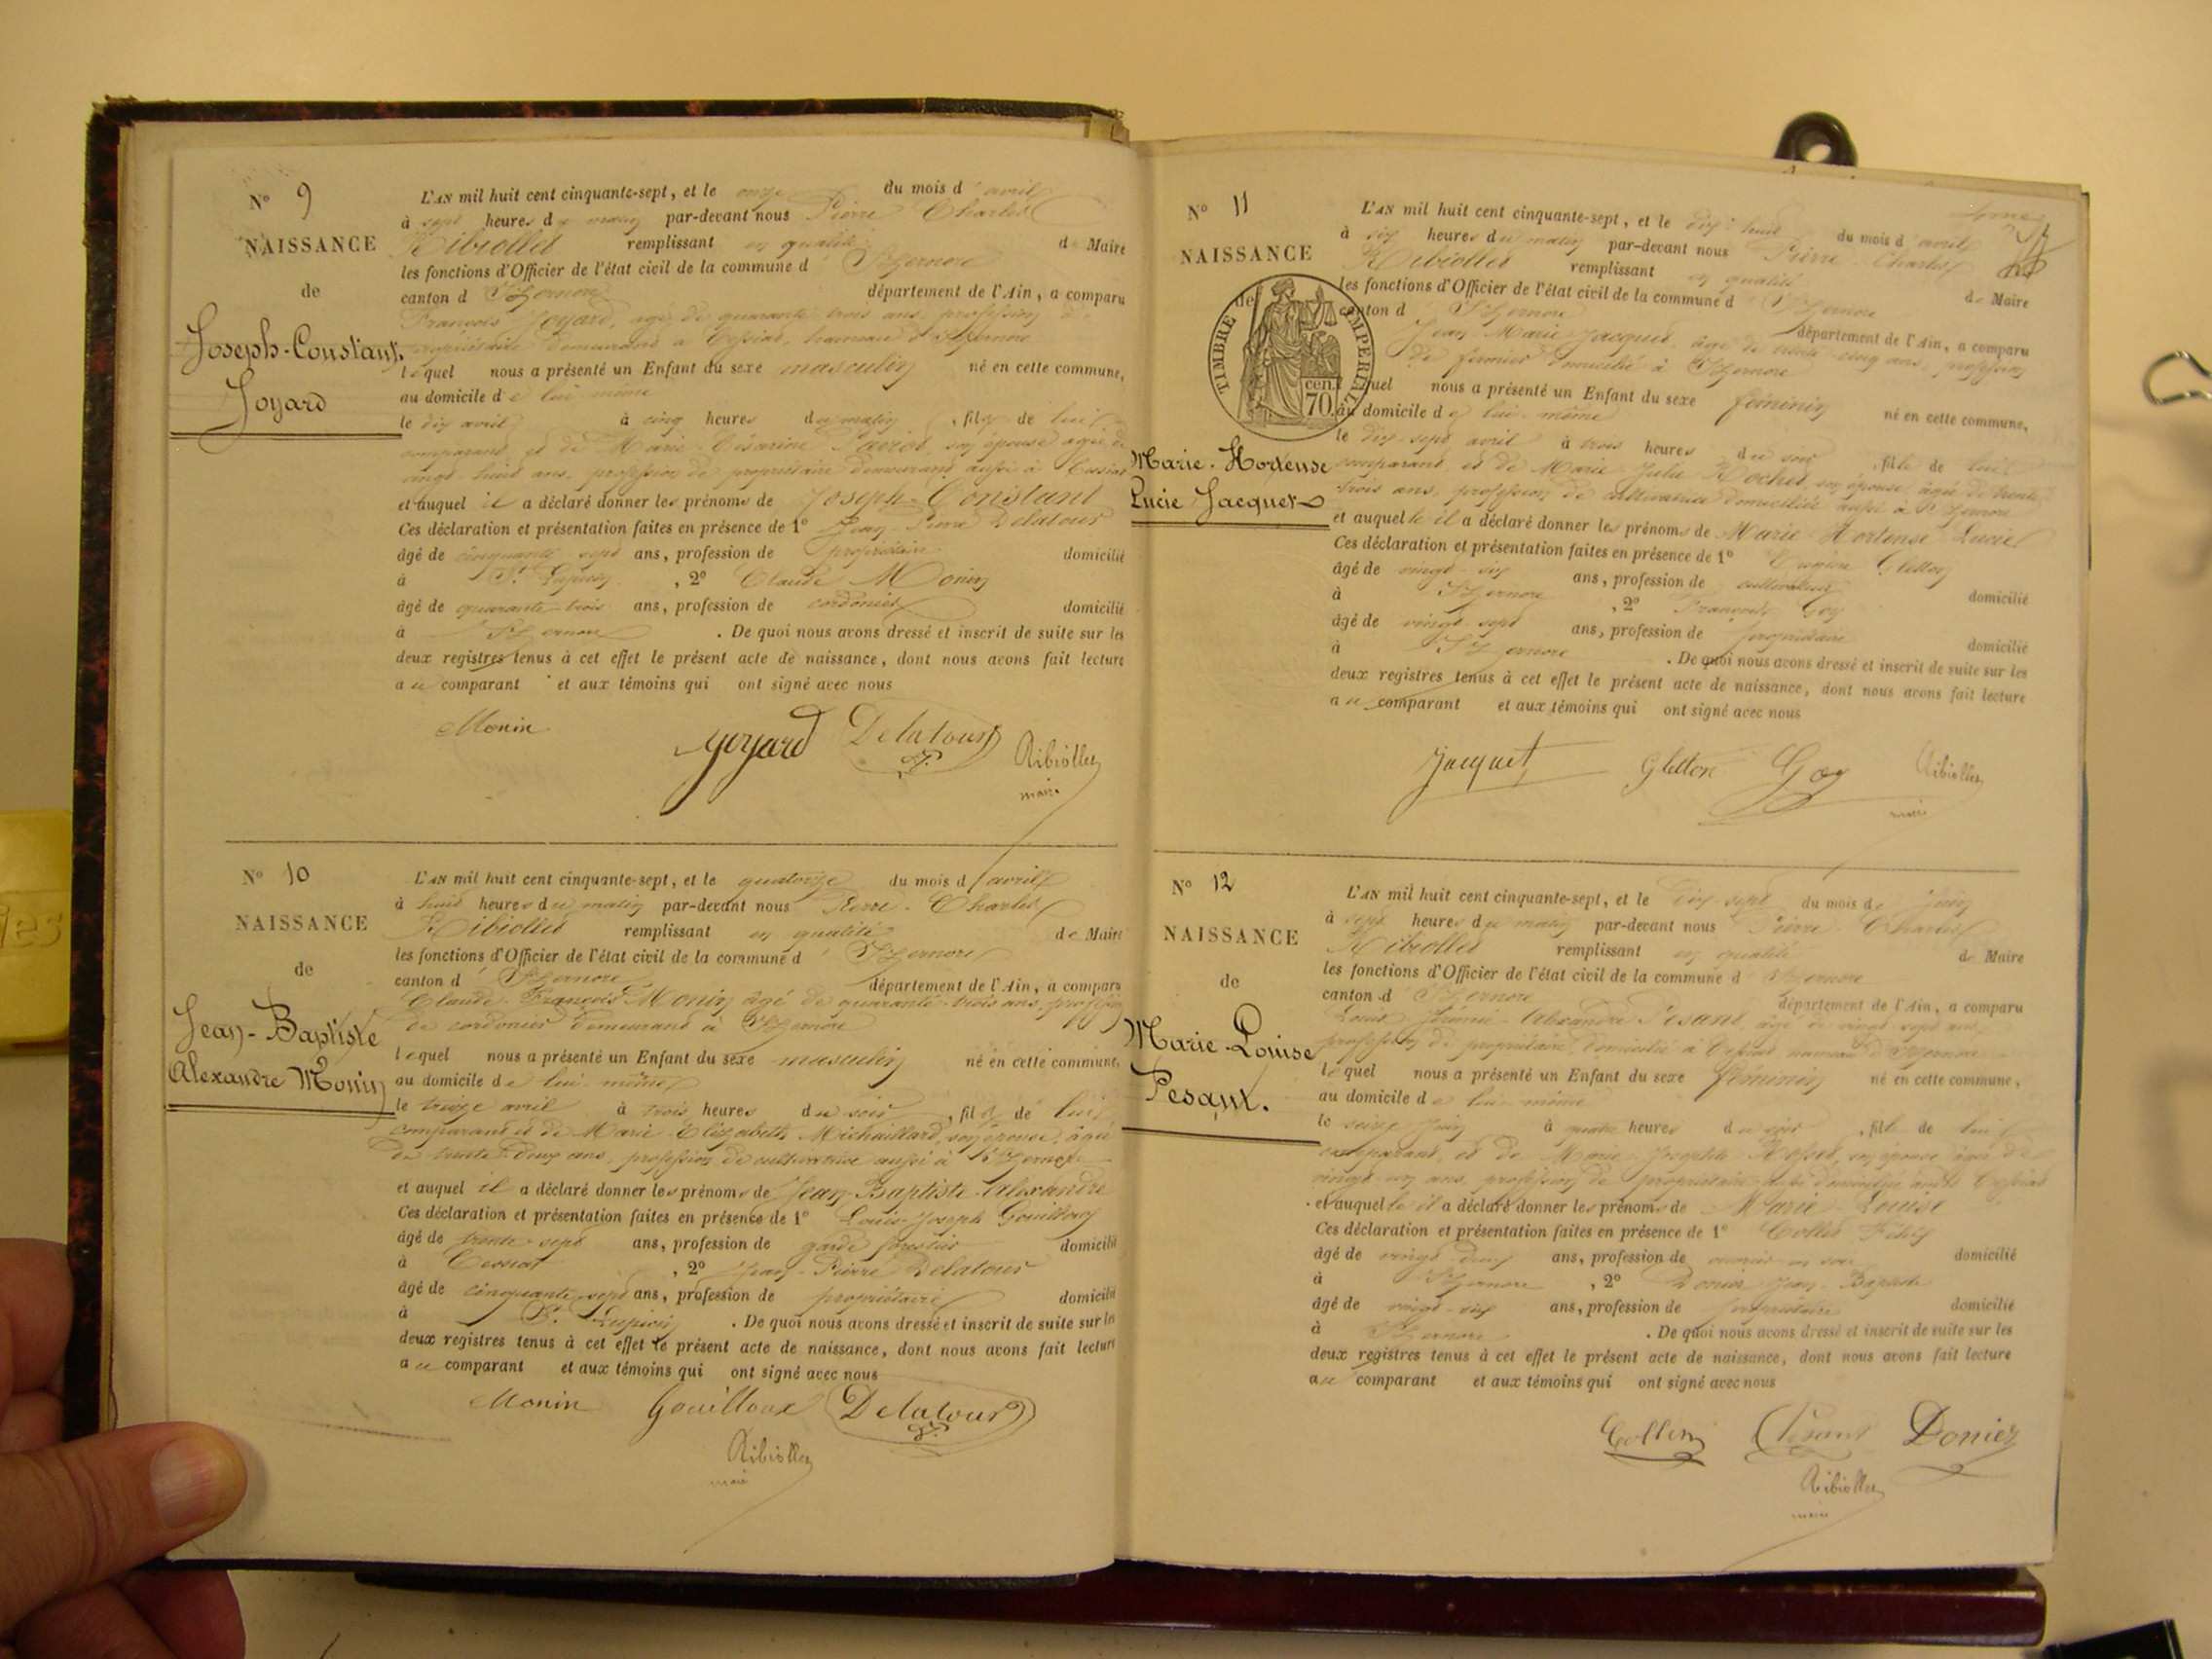 N° 9
NAISSANCE
de
Joseph-Constant
Joyard
L'AN mil huit cent cinquante-sept, et le onze du mois d'avril
à sept heures du matin par-devant nous Pierre Charles
Ribiollet remplissant en qualité de Maire
les fonctions d'Officier de l'état civil de la commune d'Izernore
canton d'Izernore département de l'Ain, a comparu
François Joyard, agé de quarante trois ans, profession de
propriétaire demeurant à Cessiat, hameau d'Izernore
lequel nous a présenté un Enfant du sexe masculin né en cette commune,
au domicile de lui-même
le dix avril à cinq heures du matin, fils de lui
comparant et de Marie Césarine son épouse agée de
vingt-huit ans, profession de propriétaire demeurant aussi à Cessiat
et auquel il a déclaré donner les prénoms de Joseph-Constant
Ces déclaration et présentation faites en présence de 1° Jean-Pierre Delatour
âgé de cinquante sept ans, profession de propriétaire domicilié
à St Lupicin, 2° Claude Monin
âgé de quarante-trois ans, profession de cordonier domicilié
à Izernore. De quoi nous avons dressé et inscrit de suite sur les
deux registres tenus à cet effet le présent acte de naissance, dont nous avons fait lecture
au comparant et aux témoins qui ont signé avec nous
Monin Joyard Delatour Ribiollet
maire
N° 10
NAISSANCE
de
Jean-Baptiste
Alexandre Monin
L'AN mil huit cent cinquante-sept, et le quatorze du mois d'avril
à huit heures du matin par-devant nous Pierre-Charles
Ribiollet remplissant en qualité de Maire
les fonctions d'Officier de l'état civil de la commune d'Izernore
canton d'Izernore département de l'Ain, a comparu
Claude-François Monin âgé de quarante-trois ans, profession
de cordonier demeurant à Izernore
lequel nous a présenté un Enfant du sexe masculin né en cette commune,
au domicile de lui-même
le treize avril à trois heures du soir, fils de lui
comparant et de Marie Elizabeth Michaillard, son épouse, âgée
de trente-deux ans, profession de cultivatrice aussi à Izernore
et auquel il a déclaré donner les prénoms de Jean-Baptiste-Alexandre
Ces déclaration et présentation faites en présence de 1° Louis-Joseph Gouilloux
âgé de trente-sept ans, profession de garde forestier domicilié
à, 2° Jean-Pierre Delatour
âgé de cinquante-sept ans, profession de propriétaire domicilié
à St Lupicin. De quoi nous avons dressé et inscrit de suite sur les
deux registres tenus à cet effet le présent acte de naissance, dont nous avons fait lecture
au comparant et aux témoins qui ont signé avec nous
Monin Gouilloux Delatour
Ribiollet
maire
N° 11
NAISSANCE
de
TIMBRE IMPERIAL
70 cen.
Marie-Hortense
Lucie Jacquet
L'AN mil huit cent cinquante-sept, et le dix-huit du mois d'avril
à six heures du matin par-devant nous Pierre-Charles
Ribiollet remplissant en qualité de Maire
les fonctions d'Officier de l'état civil de la commune d'Izernore
canton d'Izernore département de l'Ain, a comparu
Jean Marie Jacquet, âgé de trente cinq ans, profession
de fermier domicilié à Izernore
lequel nous a présenté un Enfant du sexe féminin né en cette commune,
au domicile de lui-même
le dix-sept avril à trois heures du soir, fille de lui
comparant et de Marie Julie Rochet son épouse, âgée de trente
trois ans, profession de cultivatrice domiciliée aussi à Izernore
et auquelle il a déclaré donner les prénoms de Marie-Hortense-Lucie
Ces déclaration et présentation faites en présence de 1° Gletton
âgé de vingt-six ans, profession de cultivateur domicilié
à Izernore, 2° François Goy
âgé de vingt sept ans, profession de propriétaire domicilié
à Izernore. De quoi nous avons dressé et inscrit de suite sur les
deux registres tenus à cet effet le présent acte de naissance, dont nous avons fait lecture
au comparant et aux témoins qui ont signé avec nous
Jacquet Gletton Goy Ribiollet
maire
N° 12
NAISSANCE
de
Marie-Louise
Pesant.
L'AN mil huit cent cinquante-sept, et le dix-sept du mois de juin
à sept heures du matin par-devant nous Pierre-Charles
Ribiollet remplissant en qualité de Maire
les fonctions d'Officier de l'état civil de la commune d'Izernore
canton d'Izernore département de l'Ain, a comparu
Louis Jérémie Alexandre Pesant, âgé de vingt sept ans,
profession de propriétaire domicilié à Cessiat hameau d'Izernore
lequel nous a présenté un Enfant du sexe féminin né en cette commune,
au domicile de lui-même
le seize juin à quatre heures du soir, fille de lui
comparant, et de Marie Josephte son épouse âgée de
vingt-un ans, profession de propriétaire Cessiat
et auquelle il a déclaré donner les prénoms de Marie-Louise
Ces déclaration et présentation faites en présence de 1° Collet
âgé de vingt-deux ans, profession de domicilié
à Izernore, 2° Donier Jean-Baptiste
âgé de vingt-six ans, profession de propriétaire domicilié
à Izernore. De quoi nous avons dressé et inscrit de suite sur les
deux registres tenus à cet effet le présent acte de naissance, dont nous avons fait lecture
au comparant et aux témoins qui ont signé avec nous
Pesant Donier
Ribiollet
maire